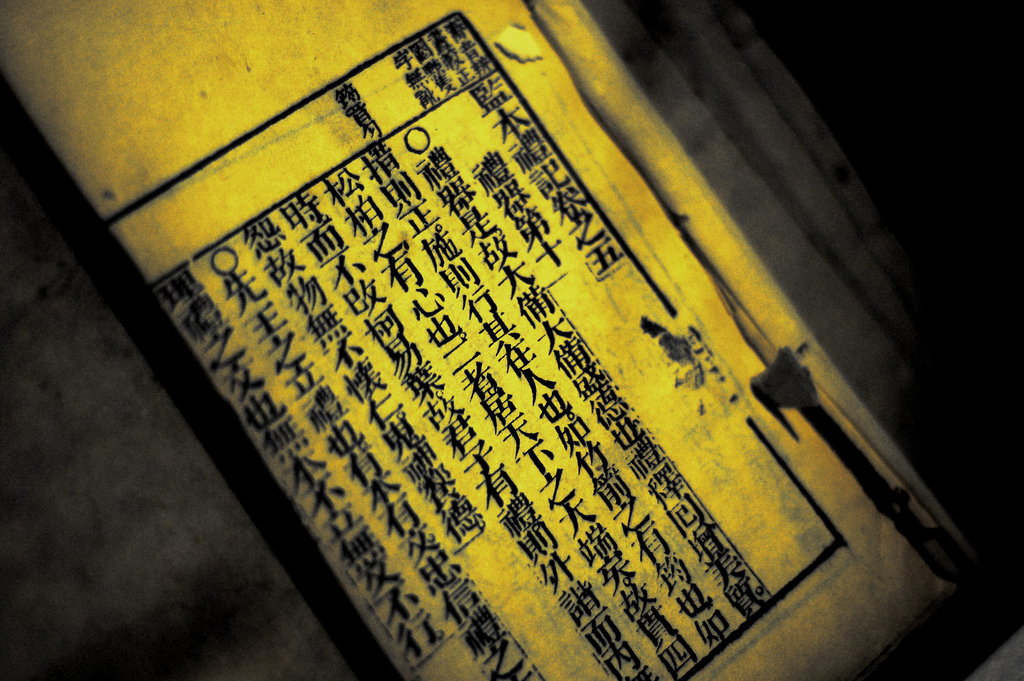 監本禮記卷之五
禮器第十
○禮器是故大備大備盛德也禮釋回增美質
措則正施則行其在人也如竹箭之有筠也如
松柏之有心也二者居天下之大端矣故貫四
時而不改柯易葉故君子有禮則外諧而內無
怨故物無不懷仁鬼神饗德
○先王之立禮也有本有文忠信禮之
理禮之文也無本不立無文不行